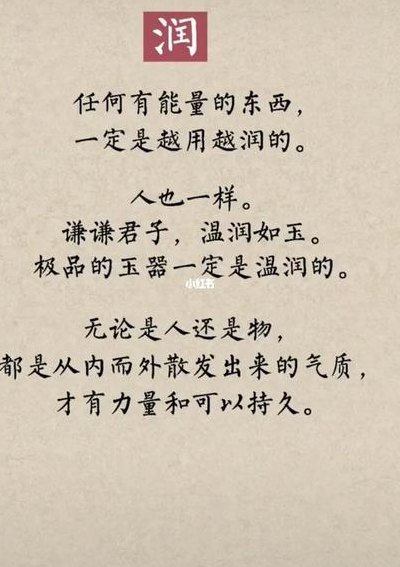 润
任何有能量的东西，
一定是越用越润的。
人也一样。
谦谦君子，温润如玉。
极品的玉器一定是温润的。
小红书
无论是人还是物，
都是从内而外散发出来的气质，
才有力量和可以持久。